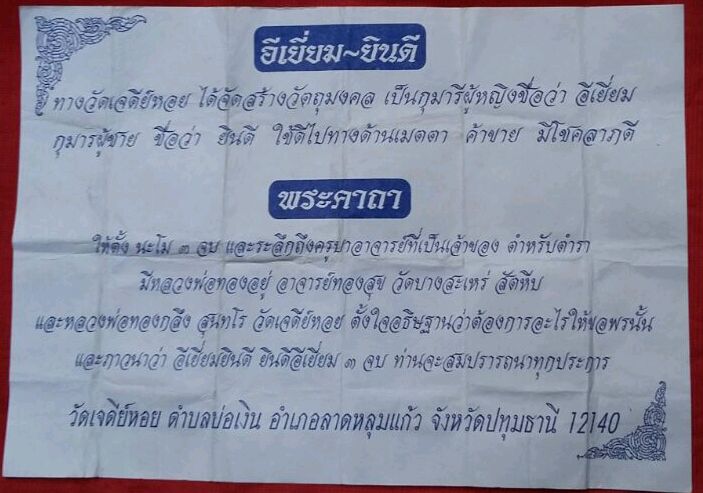 อีเยี่ยม~ยินดี
ทางวัดเจดีย์หอย ได้จัดสร้างวัตถุมงคล เป็นกุมารีผู้หญิงชื่อว่า อีเยี่ยม
กุมารผู้ชาย ชื่อว่า ยินดี ใช้ดีไปทางด้านเมตตา ค้าขาย มีโชคลาภดี
พระคาถา
ให้ตั้ง นะโม ๓ จบ และระลึกถึงครูบาอาจารย์ที่เป็นเจ้าของ ตำหรับตำรา
มีหลวงพ่อทองอยู่ อาจารย์ทองสุข วัดบางสะเหร่ สัตหีบ
และหลวงพ่อทองกลึง สุนทโร วัดเจดีย์หอย ตั้งใจอธิษฐานว่าต้องการอะไรให้ขอพรนั้น
และภาวนาว่า อีเยี่ยมยินดี ยินดีอีเยี่ยม ๓ จบ ท่านจะสมปรารถนาทุกประการ
วัดเจดีย์หอย ตำบลบ่อเงิน อำเภอลาดหลุมแก้ว จังหวัดปทุมธานี 12140